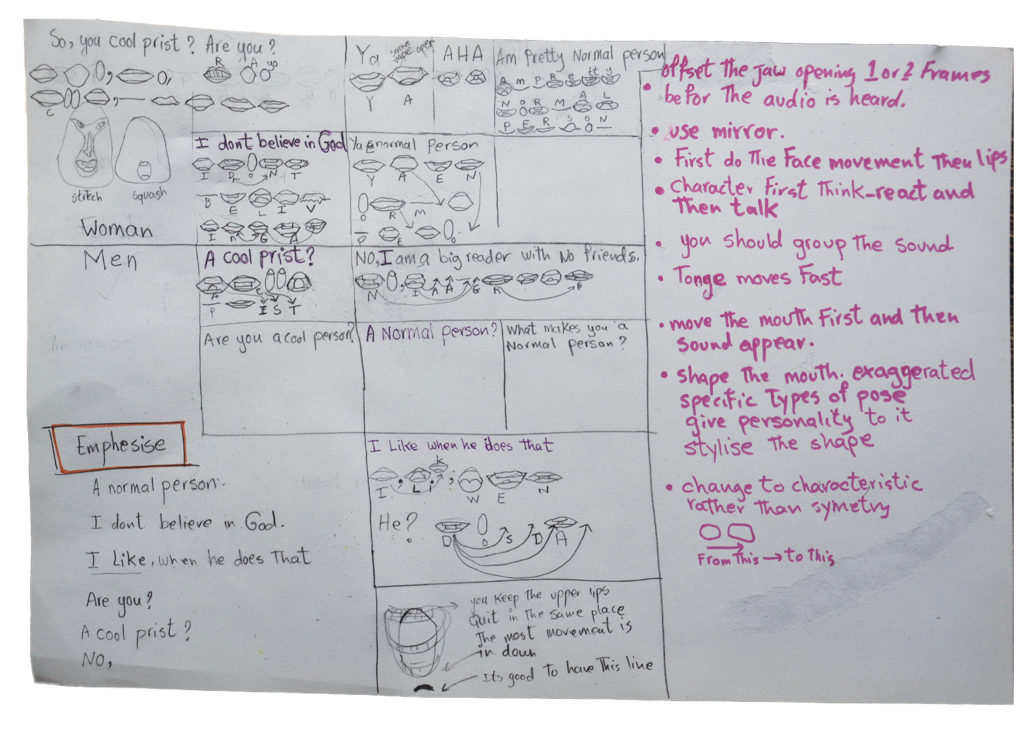 So, you cool prist? Are you?
R A yo
C
stretch squash
Woman
Ya
same shape open
Y A
AHA
Am Pretty Normal person
A m P R e tt y
N O R M A L
P E R S O N
I dont believe in God
I D O N T
B E L I V
I n G A
Ya a normal Person
Y A E N
O R M
P E O
Men
A Cool prist?
A
P I S T
NO, I am a big reader with No friends.
N I A A G R A
Are you a cool person?
A Normal person?
What makes you a
Normal person?
Emphesise
A normal person.
I dont believe in God.
I Like, when he does That
Are you?
A cool prist?
NO,
I Like when he does That
k
I L i W E N
He? D o S D A
you Keep the upper lips
Quit in The Sawe place
The most movement is
in down
Its good to have This line
offset The jaw opening 1 or 2 Frames
befor The audio is heard.
• use mirror.
• First do The Face movement Then lips
• character First Think-react and
Then talk
• you should group The sound
• Tonge moves Fast
• move the mouth First and then
sound appear.
• shape The mouth. exaggerated
specific Types of pose
give personality to it
stylise The shape
• change to characteristic
rather Than symetry
From This → to this